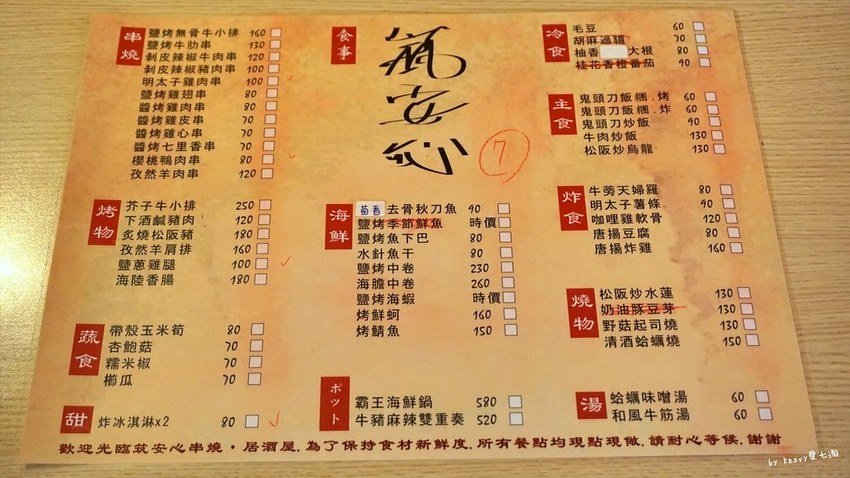 串燒
鹽烤無骨牛小排 160
鹽烤牛肋串 130
剝皮辣椒牛肉串 120
剝皮辣椒豬肉串 80
明太子雞肉串 80
鹽烤雞翅串 80
醬烤雞肉串 70
醬烤雞皮串 70
醬烤雞心串 70
醬烤七里香串 70
櫻桃鴨肉串 80
孜然羊肉串 120
烤物
芥子牛小排 250
下酒鹹豬肉 120
炙燒松阪豬 180
孜然羊肩排 160
鹽蔥雞腿 100
海陸香腸 180
蔬食
帶殼玉米筍 80
杏鮑菇 70
糯米椒 70
櫛瓜 70
甜
炸冰淇淋x2 80
食事
筑安心
7
海鮮
去骨秋刀魚 90
鹽烤季節鮮魚 時價
鹽烤魚下巴 80
水針魚干 80
鹽烤中卷 230
海膽中卷 260
鹽烤海蝦 時價
烤鮮蚵 160
烤鯖魚 150
ポット
霸王海鮮鍋 580
牛豬麻辣雙重奏 520
冷食
毛豆 60
胡麻過貓 70
柚香 大根 80
桂花香橙番茄 90
主食
鬼頭刀飯糰.烤 60
鬼頭刀飯糰.炸 60
鬼頭刀炒飯 90
牛肉炒飯 130
松阪炒烏龍 130
炸食
牛蒡天婦羅 80
明太子薯條 90
咖哩雞軟骨 120
唐揚豆腐 80
唐揚炸雞 160
燒物
松阪炒水蓮 130
奶油豚豆芽 130
野菇起司燒 130
清酒蛤蠣燒 150
湯
蛤蠣味噌湯 60
和風牛筋湯 60
歡迎光臨筑安心串燒·居酒屋.為了保持食材新鮮度.所有餐點均現點現做.請耐心等侯.謝謝